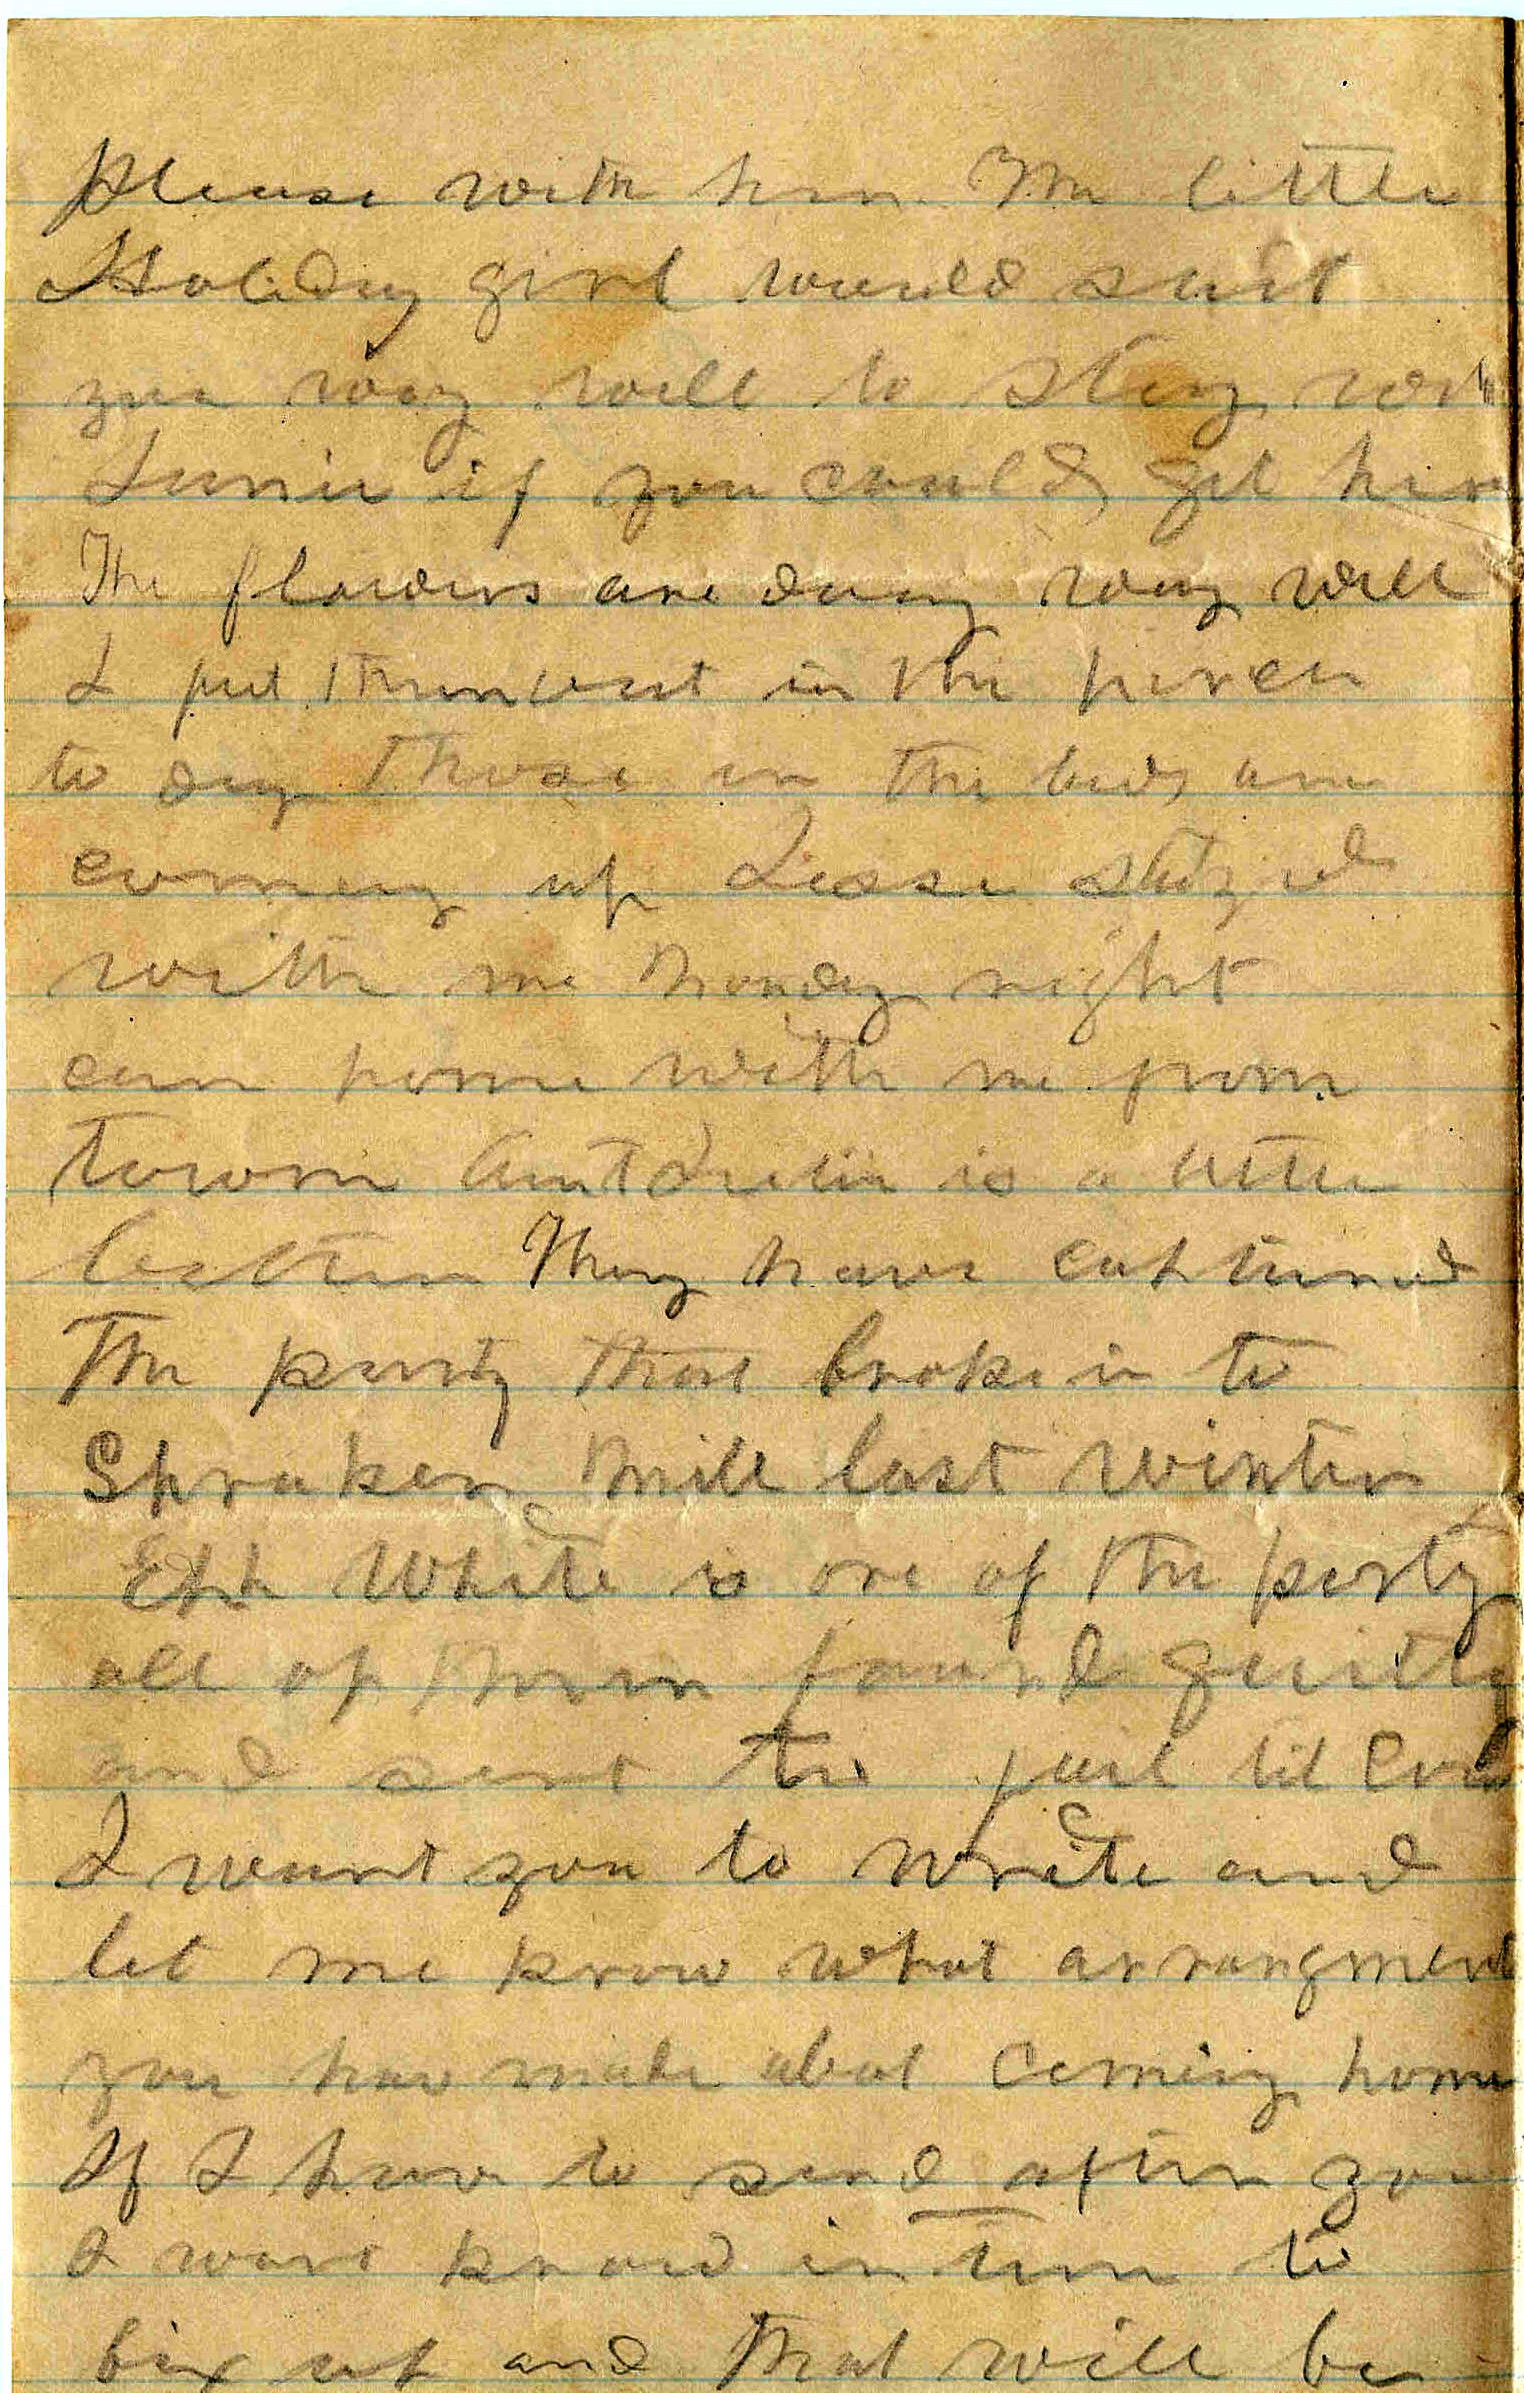 please with her The little
Holiday girl would suit
you way well to stay with
Junie if you could get her
The flowers are doing way well
I put them out in the porch
to day Those in the beds are
coming up Jesse stayed
with me Monday night
cam home with me from
town Aunt Julia is a little
better They have captured
The party that broke in to
Spraker Mill last winter
White is one of the party
all of them found guilty
and sent to jail til
I want you to write and
let me know what arrangment
you hav made about coming home
If I hav to send after you
I want know in time to
fix up and that will be